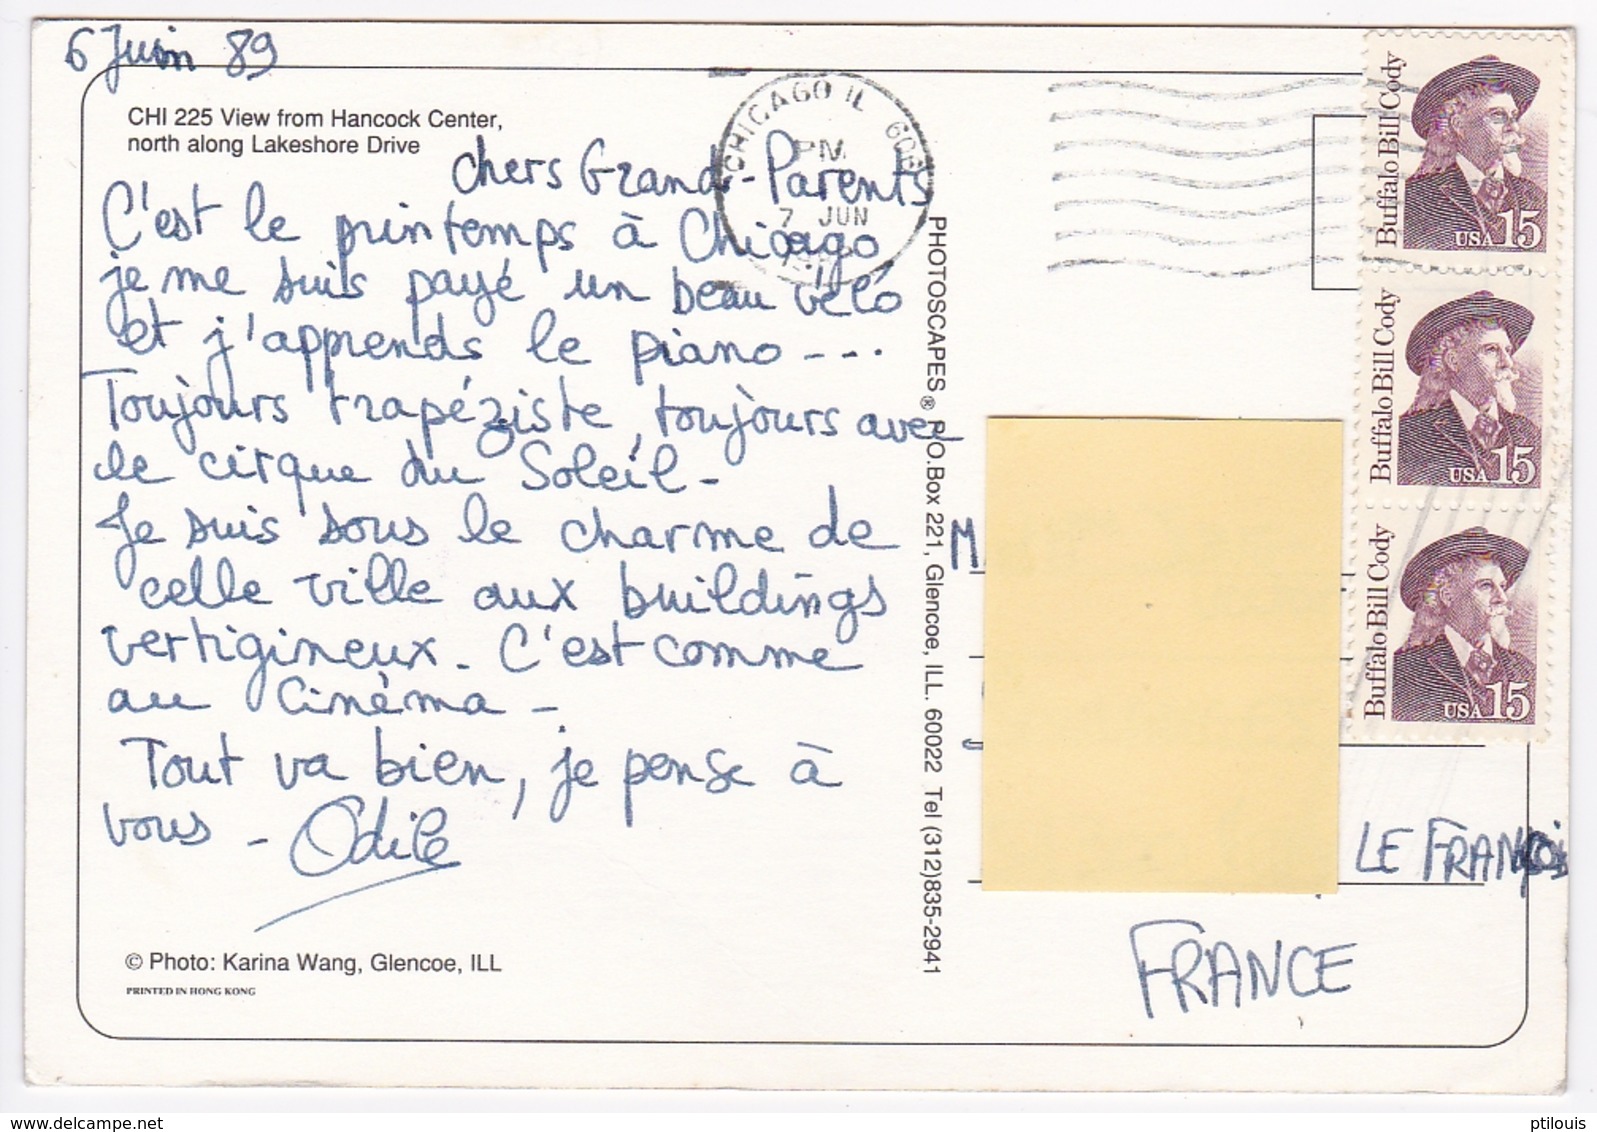 6 Juin 89
CHI 225 View from Hancock Center,
north along Lakeshore Drive
Chers Grands-Parents
C'est le printemps à Chicago
je me suis payé un beau vélo
et j'apprends le piano - - -
Toujours trapéziste, toujours avec
le cirque du Soleil -
Je suis sous le charme de
celle ville aux buildings
vertigineux. C'est comme
au Cinéma -
Tout va bien, je pense à
vous - Odile
© Photo: Karina Wang, Glencoe, ILL
PRINTED IN HONG KONG
PHOTOSCAPES® P.O.Box 221, Glencoe, ILL. 60022 Tel (312)835-2941
CHICAGO IL
PM
7 JUN
Buffalo Bill Cody
USA 15
Buffalo Bill Cody
USA 15
Buffalo Bill Cody
USA 15
M
LE FRANÇOIS
FRANCE
ptilouis